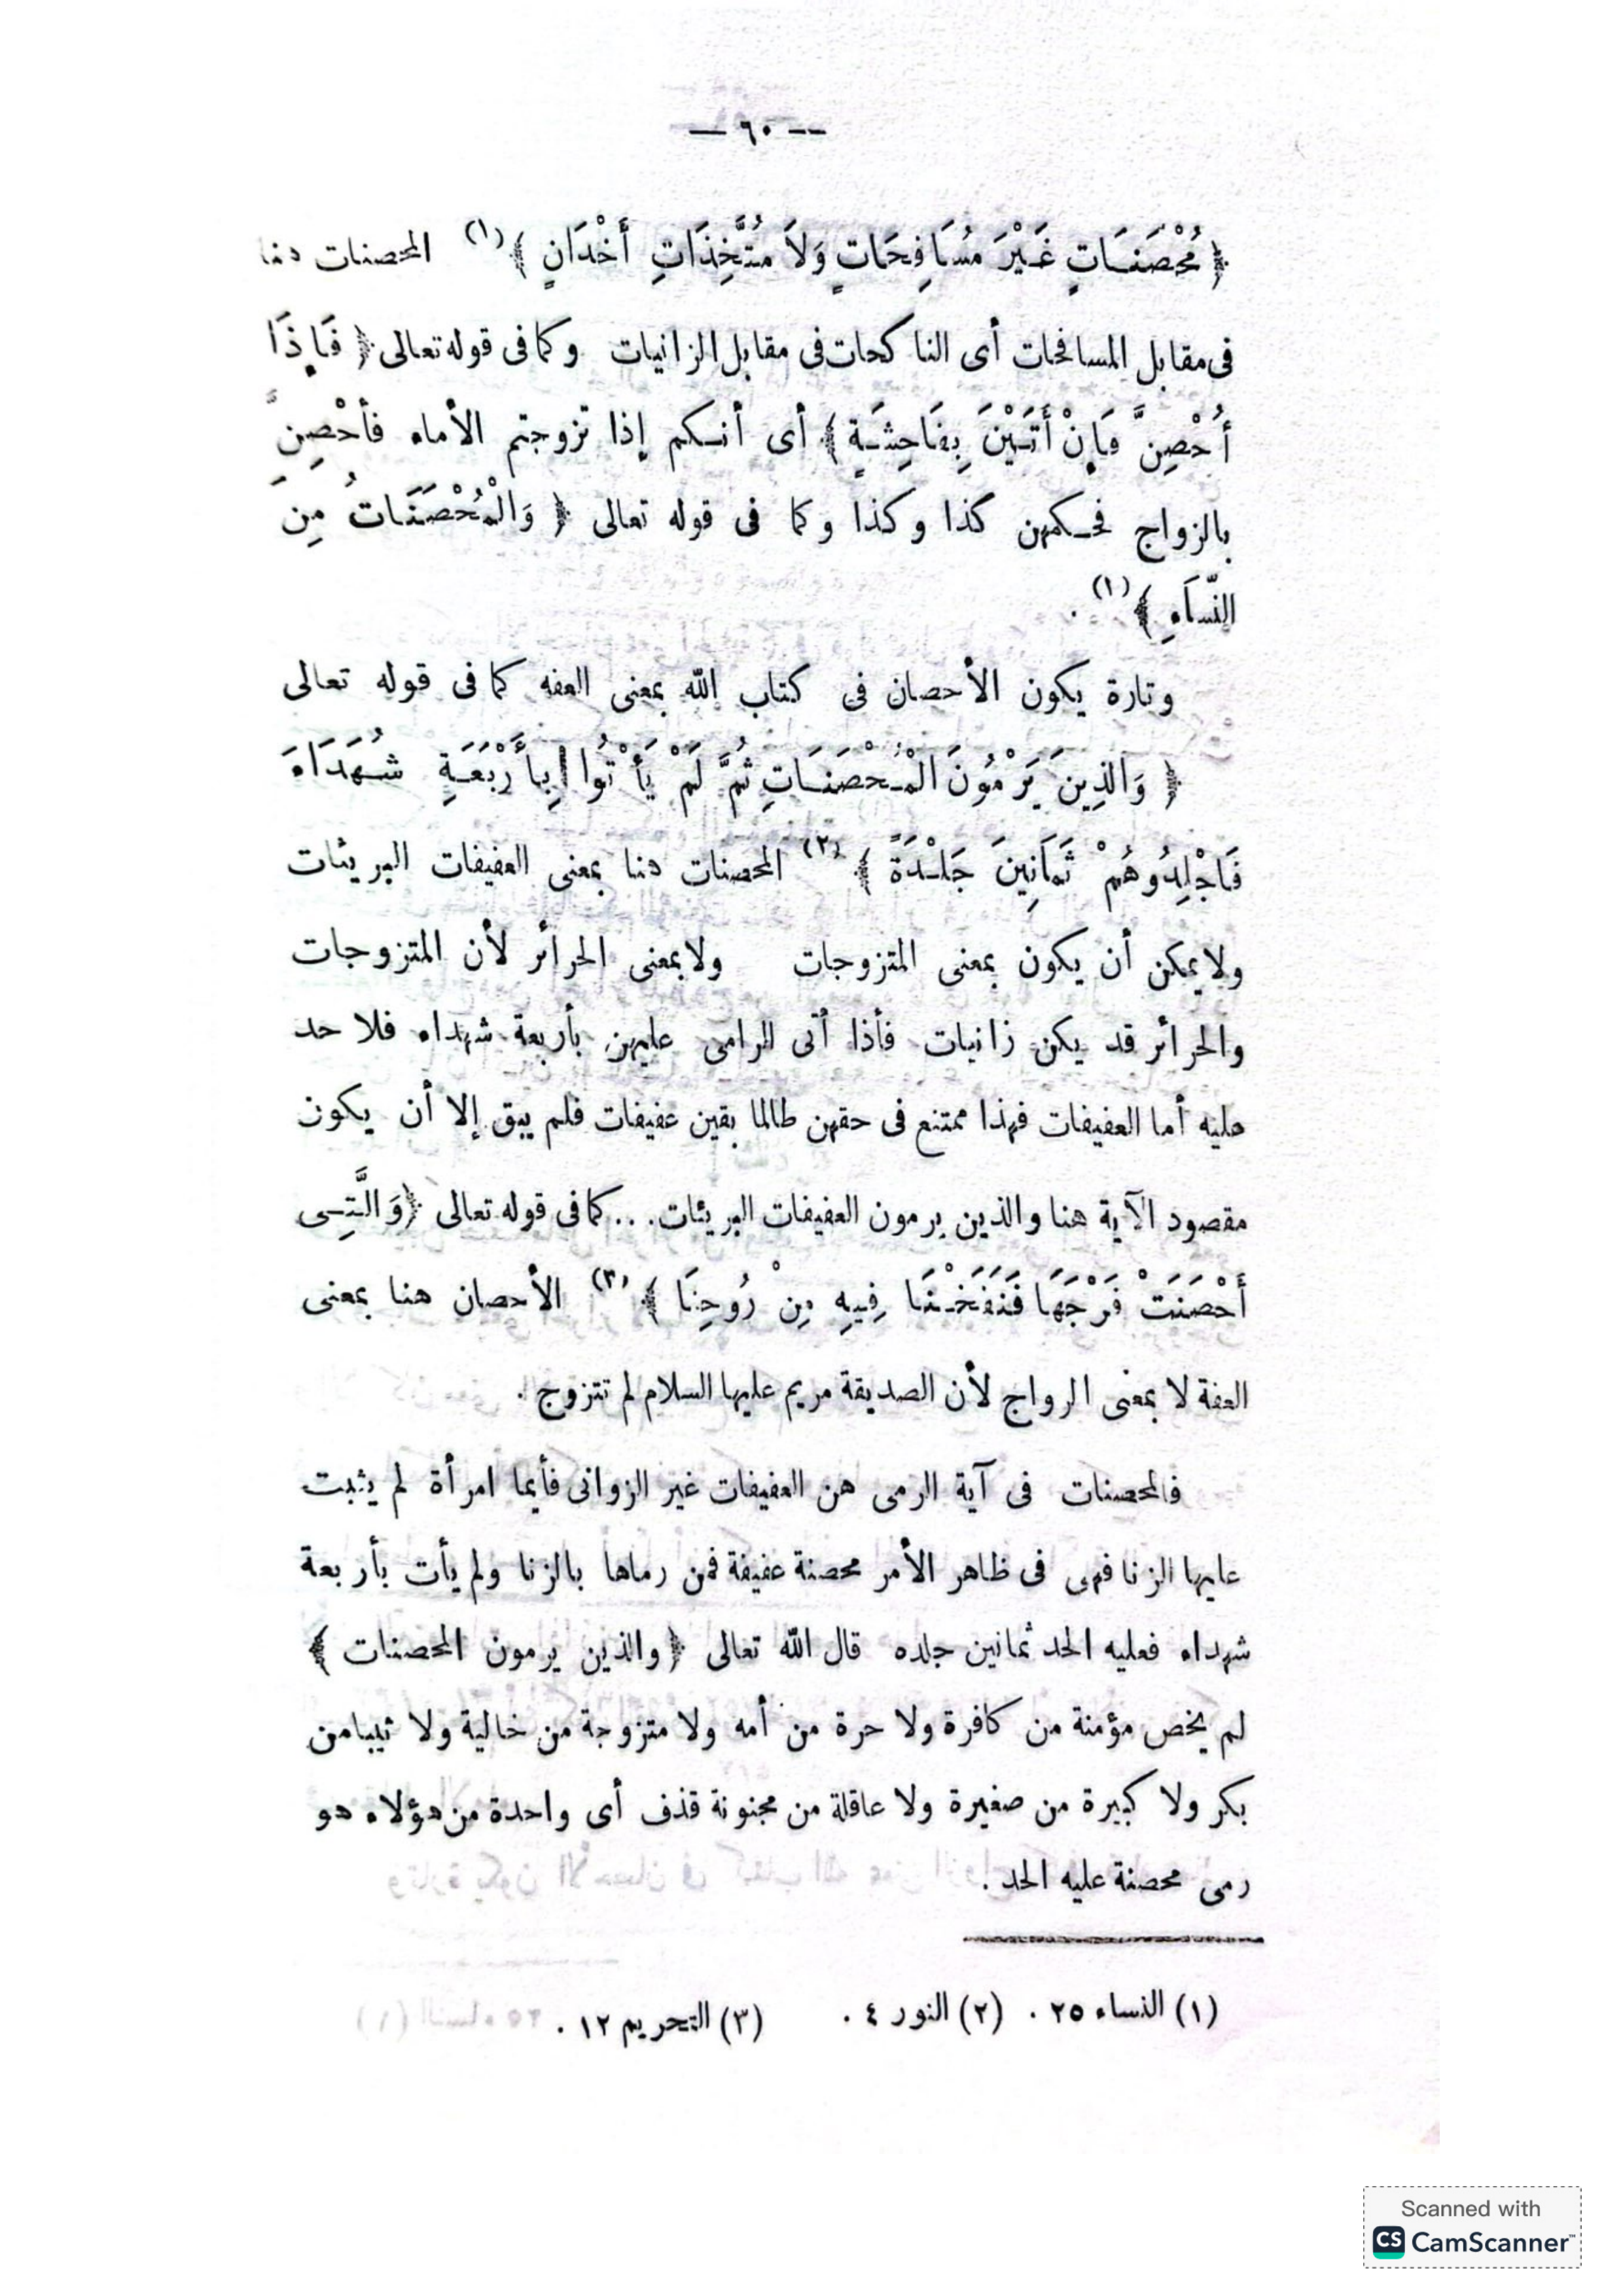 — ٦٠ —
﴿ مُحْصَنَـاتٍ غَـيْرَ مُسَافِحَاتٍ وَلاَ مُتَّخِذَاتِ أَخْدَانٍ ﴾ (١) المحصنات هنا
فى مقابل المسافحات أى الناكحات فى مقابل الزانيات وكما فى قوله تعالى ﴿ فَإِذَا
أُحْصِنَّ فَإِنْ أَتَـيْنَ بِفَاحِشَـةٍ ﴾ أى أنـكم إذا تزوجتم الأماء فأحْصِنَّ
بالزواج فحـكمهن كذا وكذا وكما فى قوله تعالى ﴿ وَالْمُحْصَنَاتُ مِنَ
النِّسَاءِ ﴾ (١) .
وتارة يكون الأحصان فى كتاب الله بمعنى العفه كما فى قوله تعالى
﴿ وَالذِينَ يَرْمُونَ الْمُـحْصَنَـاتِ ثُمَّ لَمْ يَأْتُوا بِأَرْبَعَـةِ شُـهَدَاءَ
فَاجْلِدُوهُمْ ثَمَانِينَ جَلْـدَةً ﴾ (٢) المحصنات هنا بمعنى العفيفات البريئات
ولا يمكن أن يكون بمعنى المتزوجات ولا بمعنى الحرائر لأن المتزوجات
والحرائر قد يكن زانيات فأذا أتى الرامى عليهن بأربعة شهداء فلا حد
عليه أما العفيفات فهذا ممتنع فى حقهن طالما بقين عفيفات فلم يبق إلا أن يكون
مقصود الآية هنا والذين يرمون العفيفات البريئات... كما فى قوله تعالى ﴿ وَالَّتِـى
أَحْصَنَتْ فَرْجَهَا فَنَفَخْـنَا فِيهِ مِنْ رُوحِنَا ﴾ (٣) الأحصان هنا بمعنى
العفة لا بمعنى الرواج لأن الصديقة مريم عليها السلام لم تتزوج .
فالمحصنات فى آية الرمى هن العفيفات غير الزوانى فأيما امرأة لم يثبت
عليها الزنا فهى فى ظاهر الأمر محصنة عفيفة فمن رماها بالزنا ولم يأت بأربعة
شهداء فعليه الحد ثمانين جلده قال الله تعالى ﴿ والذين يرمون المحصنات ﴾
لم يخص مؤمنة من كافرة ولا حرة من أمه ولا متزوجة من خالية ولا ثيبا من
بكر ولا كبيرة من صغيرة ولا عاقلة من مجنونة قذف أى واحدة من هؤلاء هو
رمى محصنة عليه الحد .
(١) النساء ٢٥ . (٢) النور ٤ . (٣) التحريم ١٢ .
Scanned with
CS CamScanner